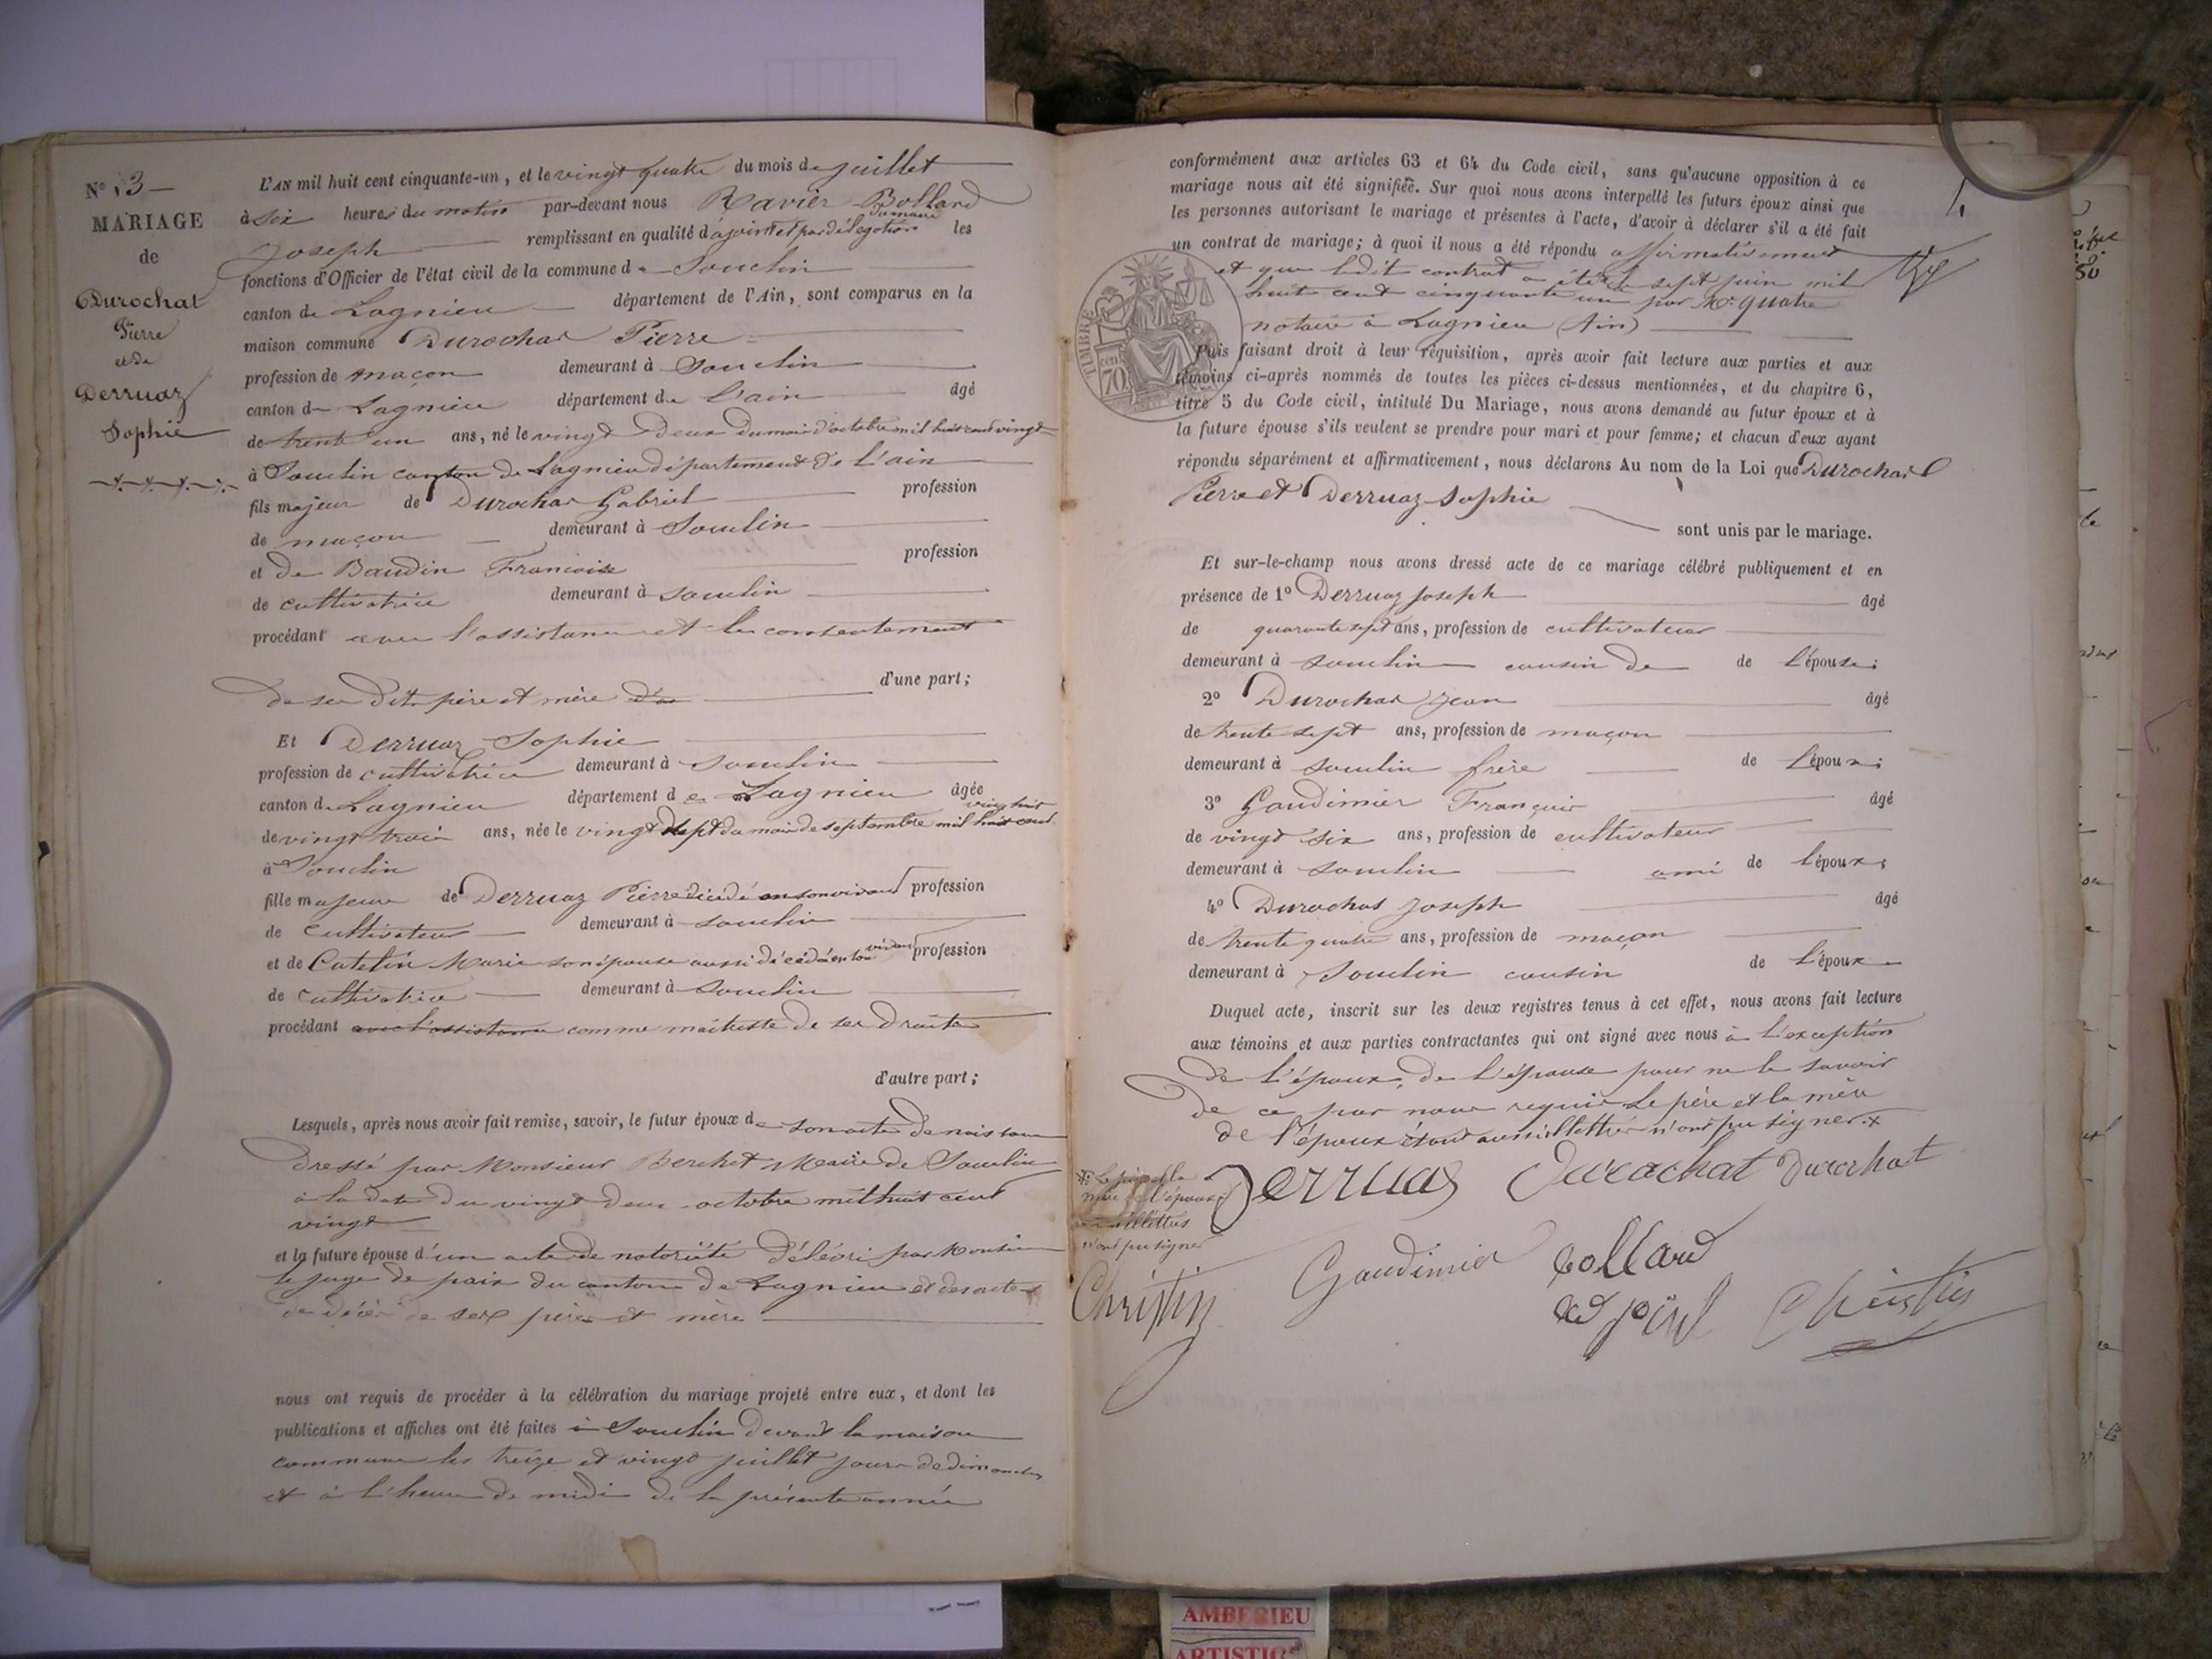 N° 13 —
MARIAGE
de
Durochat
Pierre
et de
Derruaz
Sophie
L'AN mil huit cent cinquante-un, et le vingt quatre du mois de juillet
à six heures du matin par-devant nous Ravier Bollard
Joseph remplissant en qualité d'ajoint et par délégation du maire les
fonctions d'Officier de l'état civil de la commune de Souclin
canton de Lagnieu département de l'Ain, sont comparus en la
maison commune Durochat Pierre
profession de maçon demeurant à Souclin
canton de Lagnieu département de l'ain âgé
de trente un ans, né le vingt deux du mois d'octobre mil huit cent vingt
à Souclin canton de Lagnieu département de l'ain
fils majeur de Durochat Gabriel profession
de maçon demeurant à Souclin
et de Baudin Françoise profession
de cultivatrice demeurant à Souclin
procédant avec l'assistance et le consentement
de ses dits père et mère d'une part;
Et Derruaz Sophie
profession de cultivatrice demeurant à Souclin
canton de Lagnieu département de Lagnieu âgée
de vingt trois ans, née le vingt sept du mois de septembre mil huit cent vingt huit
à Souclin
fille majeure de Derruaz Pierre décédé en son vivant profession
de cultivateur demeurant à Souclin
et de Catelin Marie son épouse aussi décédée en son vivant profession
de cultivatrice demeurant à Souclin
procédant avec l'assistance comme maîtresse de ses droits
d'autre part;
Lesquels, après nous avoir fait remise, savoir, le futur époux de son acte de naissance
dressé par Monsieur Berchet Maire de Souclin
à la date du vingt deux octobre mil huit cent
vingt
et la future épouse d'un acte de notoriété délévré par Monsieur
le juge de paix du canton de Lagnieu et des actes
de décès de ses père et mère
nous ont requis de procéder à la célébration du mariage projeté entre eux, et dont les
publications et affiches ont été faites à Souclin devant la maison
commune les treize et vingt juillet jours de dimanches
et à l'heure de midi de la présente année
conformément aux articles 63 et 64 du Code civil, sans qu'aucune opposition à ce
mariage nous ait été signifiée. Sur quoi nous avons interpellé les futurs époux ainsi que
les personnes autorisant le mariage et présentes à l'acte, d'avoir à déclarer s'il a été fait
un contrat de mariage; à quoi il nous a été répondu affirmativement
et que ledit contrat a été le sept juin mil
huit cent cinquante un par Me quatre
notaire à Lagnieu (Ain)
TIMBRE
70 cen
Puis faisant droit à leur réquisition, après avoir fait lecture aux parties et aux
témoins ci-après nommés de toutes les pièces ci-dessus mentionnées, et du chapitre 6,
titre 5 du Code civil, intitulé Du Mariage, nous avons demandé au futur époux et à
la future épouse s'ils veulent se prendre pour mari et pour femme; et chacun d'eux ayant
répondu séparément et affirmativement, nous déclarons Au nom de la Loi que Durochat
Pierre et Derruaz Sophie
sont unis par le mariage.
Et sur-le-champ nous avons dressé acte de ce mariage célébré publiquement et en
présence de 1° Derruaz Joseph âgé
de quarante sept ans, profession de cultivateur
demeurant à Souclin cousin de de l'épouse;
2° Durochat Jean âgé
de trente sept ans, profession de maçon
demeurant à Souclin frère de l'époux;
3° Gaudimier François âgé
de vingt six ans, profession de cultivateur
demeurant à Souclin ami de l'époux;
4° Durochat Joseph âgé
de trente quatre ans, profession de maçon
demeurant à Souclin cousin de l'époux
Duquel acte, inscrit sur les deux registres tenus à cet effet, nous avons fait lecture
aux témoins et aux parties contractantes qui ont signé avec nous à l'exception
de l'époux, de l'épouse pour ne le savoir
de ce par nous requis Le père et la mère
de l'époux étant aussi illettrés n'ont pu signer
Le père et la
mère de l'époux
illettrés
n'ont pu signer
Derruaz Durochat Durochat
Christin Gaudimier Bollard
adjoint Christin
AMBERIEU
ARTISTIC